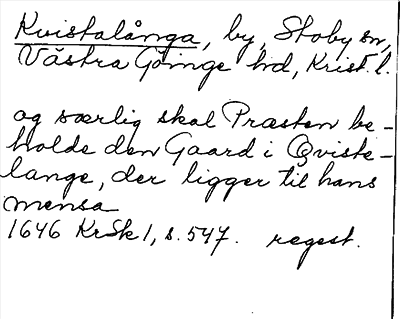 Kvistalånga, by, Stoby sn,
Västra Göinge hd, Krist. l.
og særlig skal Præsten be-
holde den Gaard i Qviste-
lange, der ligger til hans
mensa
1646 KrSk 1, s. 547. regest.